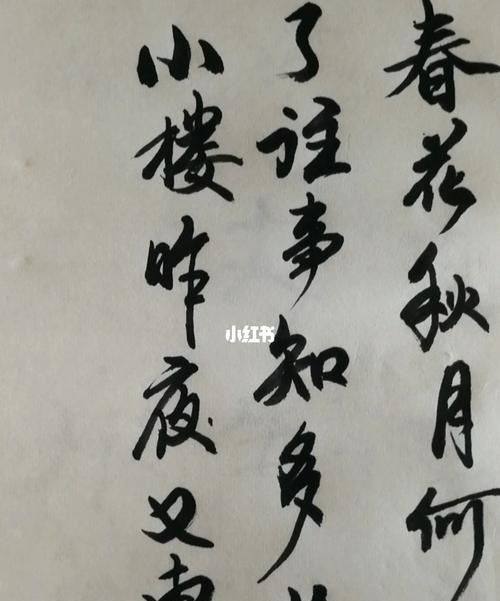 春花秋月何
了往事知多
小楼昨夜又
小红书